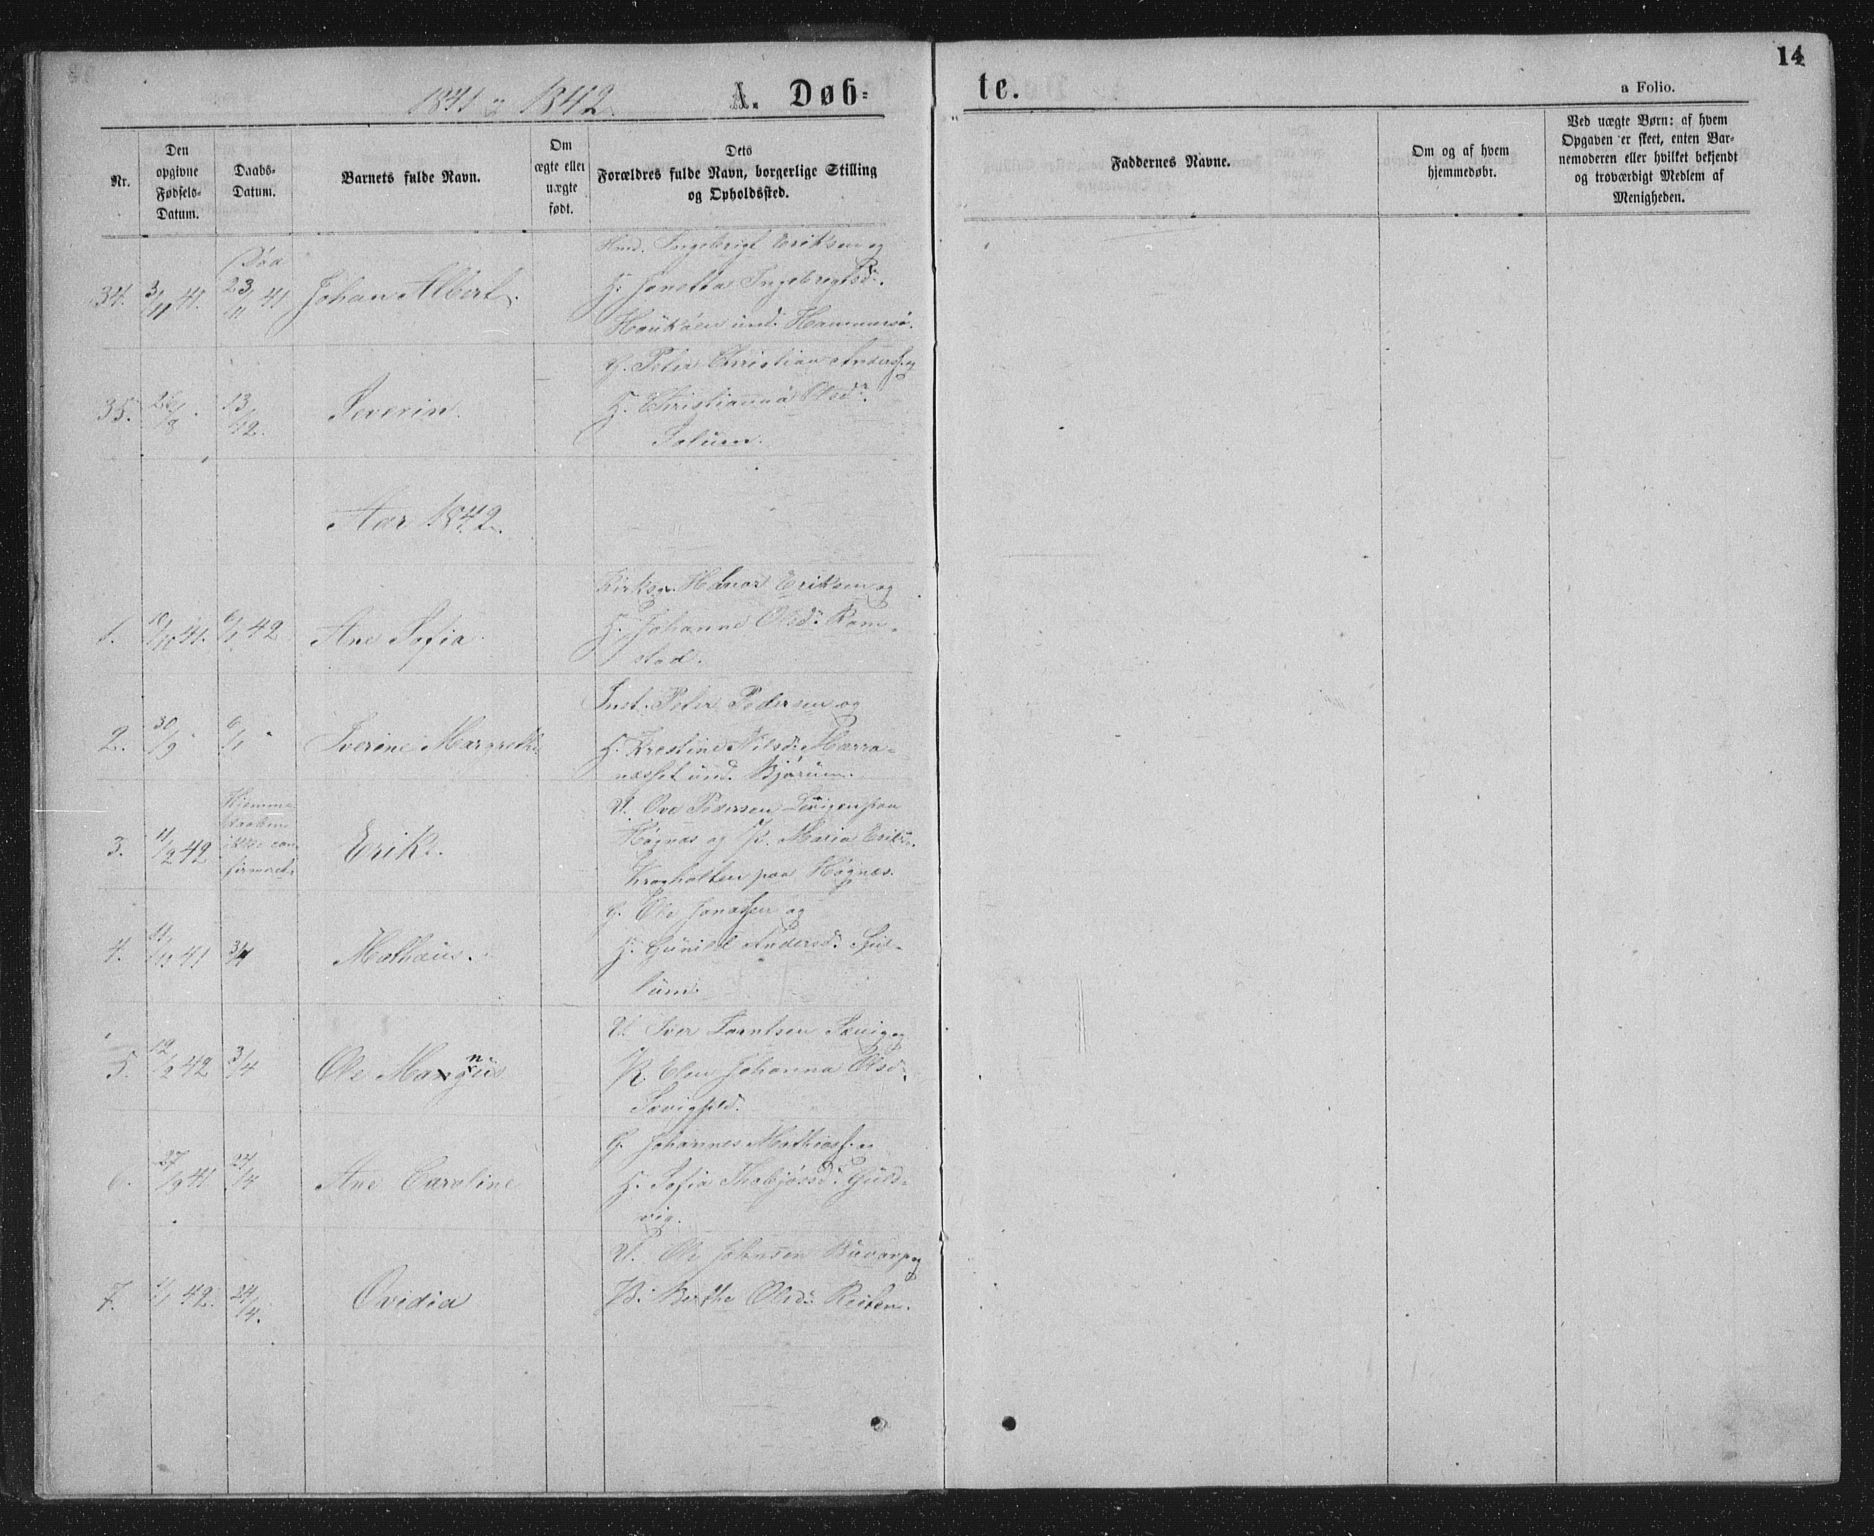 1841 & 1842
A. Døb-
te.
14
a Folio.
Nr.
Den opgivne Fødsels-Datum.
Daabs-Datum.
Barnets fulde Navn.
Om ægte eller uægte født.
Dets Forældres fulde Navn, borgerlige Stilling og Opholdssted.
Faddernes Navne.
Om og af hvem hjemmedøbt.
Ved uægte Børn: af hvem Opgaven er skeet, enten Barnemoderen eller hvilket bekjendt og troværdigt Medlem af Menigheden.
34. 3/11 41. 23/11 41 Johan Albert. Ingebrigt Eriksen og
H. Jonetta Ingebregtsdr.
und. Hammersø.
35. 26/8. 13/12. Severin. G. Peter Christian Anders. og
H. Christianna Olsdr.
Solum.
Aar 1842.
1. 10/10 41. 6/1 42 Ane Sofia. Eriksen og
H. Johanne Olsd. Ram-
stad.
2. 30/9 6/1 Iverine Margrethe Inst. Peter Pedersen og
H. Krestine Nilsd. Marra-
næsset und. Bjørum.
3. 11/2 42 Hjemme
daaben
ikke con-
firmeret. Erik. U. Ove Pedersen paa
Høgnæs og P. Maria Eriksd.
Kragholten paa Høgnæs.
4. 11 41 3/4 Mathæus. G. Ole Jonassen og
H. Gunild Andersd. Spil-
lum.
5. 12/2 42 3/4 Ole Mangnus U. Iver Sævig og
P. Elen Johanna Olsd.
6. 27/9 41 24/4 Ane Caroline G. Johannes Mathiass. og
H. Sofia Guld-
vig.
7. 42. 24/4. Ovidia U. Ole Johnsen Buvarp og
P. Berthe Olsd.